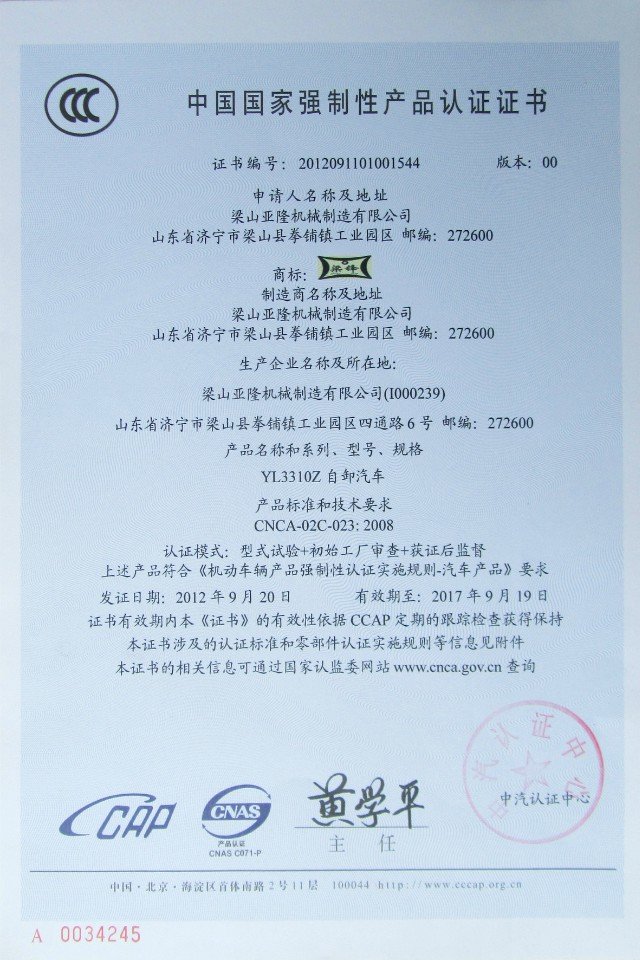 中国国家强制性产品认证证书
证书编号：2012091101001544 版本：00
申请人名称及地址
梁山亚隆机械制造有限公司
山东省济宁市梁山县拳铺镇工业园区 邮编：272600
商标： 梁锋
制造商名称及地址
梁山亚隆机械制造有限公司
山东省济宁市梁山县拳铺镇工业园区 邮编：272600
生产企业名称及所在地：
梁山亚隆机械制造有限公司(I000239)
山东省济宁市梁山县拳铺镇工业园区四通路 6 号 邮编：272600
产品名称和系列、型号、规格
YL3310Z 自卸汽车
产品标准和技术要求
CNCA-02C-023: 2008
认证模式：型式试验+初始工厂审查+获证后监督
上述产品符合《机动车辆产品强制性认证实施规则-汽车产品》要求
发证日期：2012 年 9 月 20 日 有效期至：2017 年 9 月 19 日
证书有效期内本《证书》的有效性依据 CCAP 定期的跟踪检查获得保持
本证书涉及的认证标准和零部件认证实施规则等信息见附件
本证书的相关信息可通过国家认监委网站 www.cnca.gov.cn 查询
中汽认证中心
CCAP
CNAS
产品认证
CNAS C071-P
黄学平
主 任
中汽认证中心
中国·北京·海淀区首体南路 2 号 11 层 100044 http://www.cccap.org.cn
A 0034245